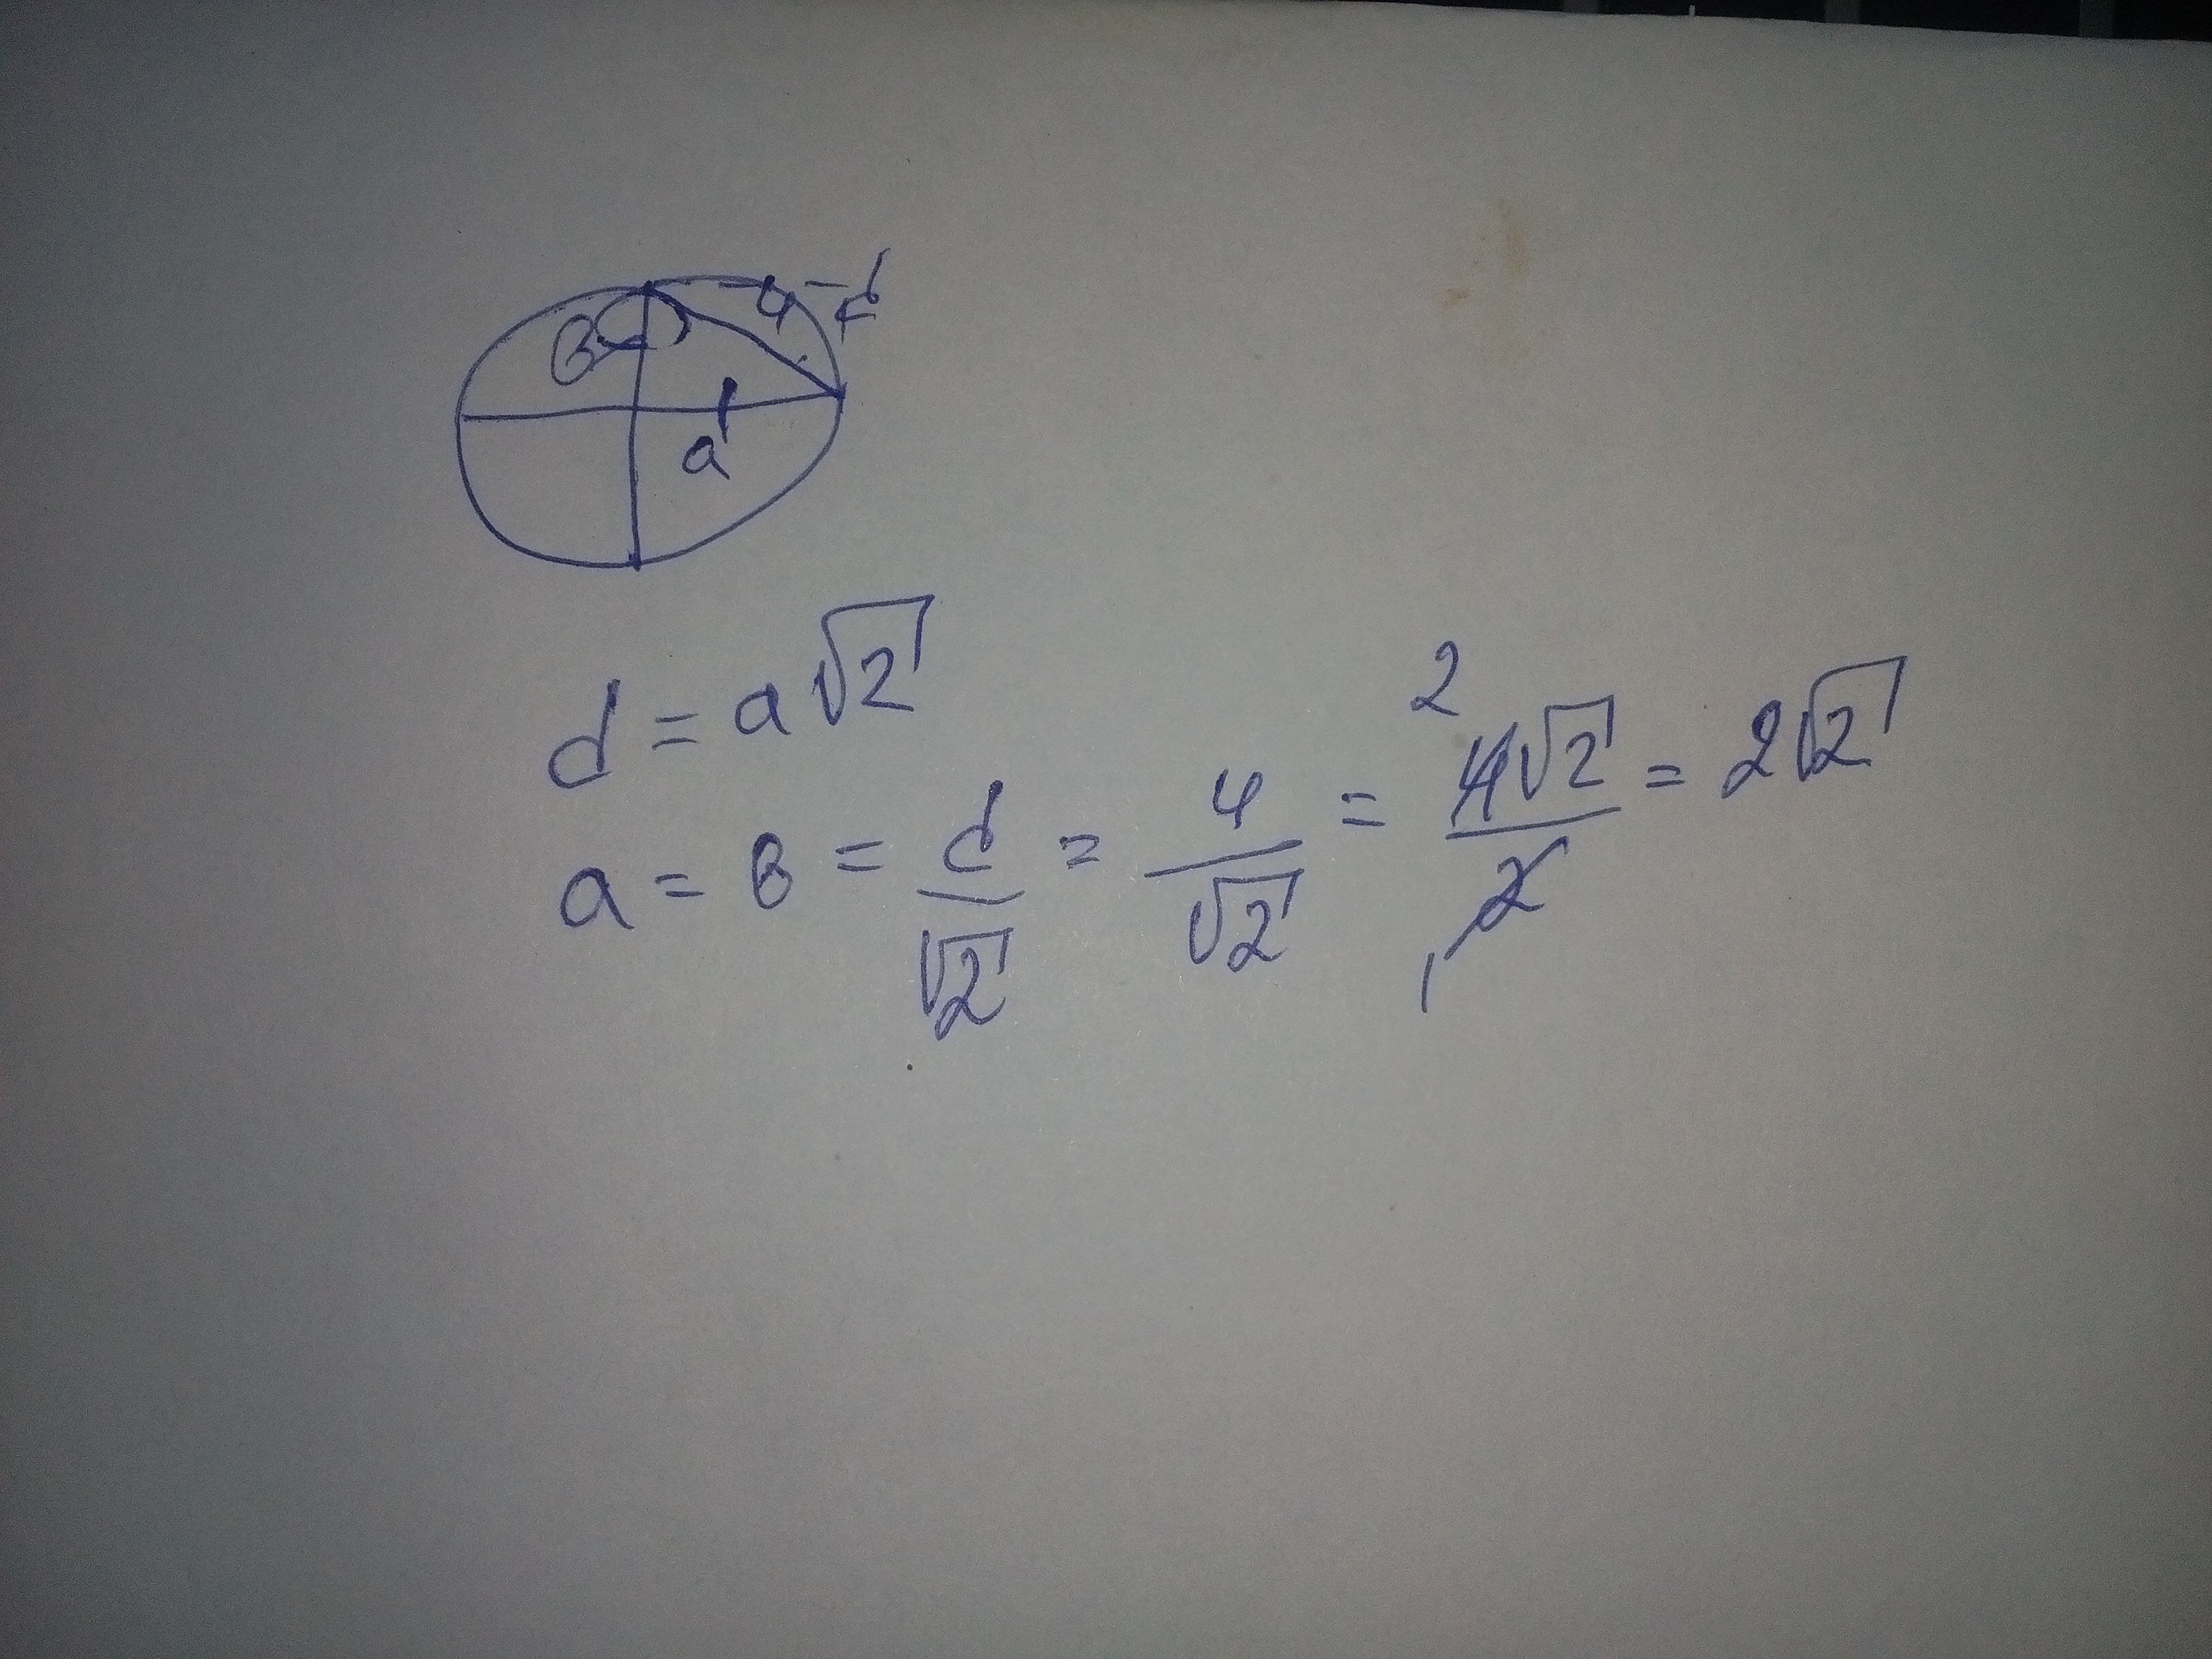 в 4 d
a
d = a√2
a = в = d/√2 = 4/√2 = 4√2/2 = 2√2
2
1